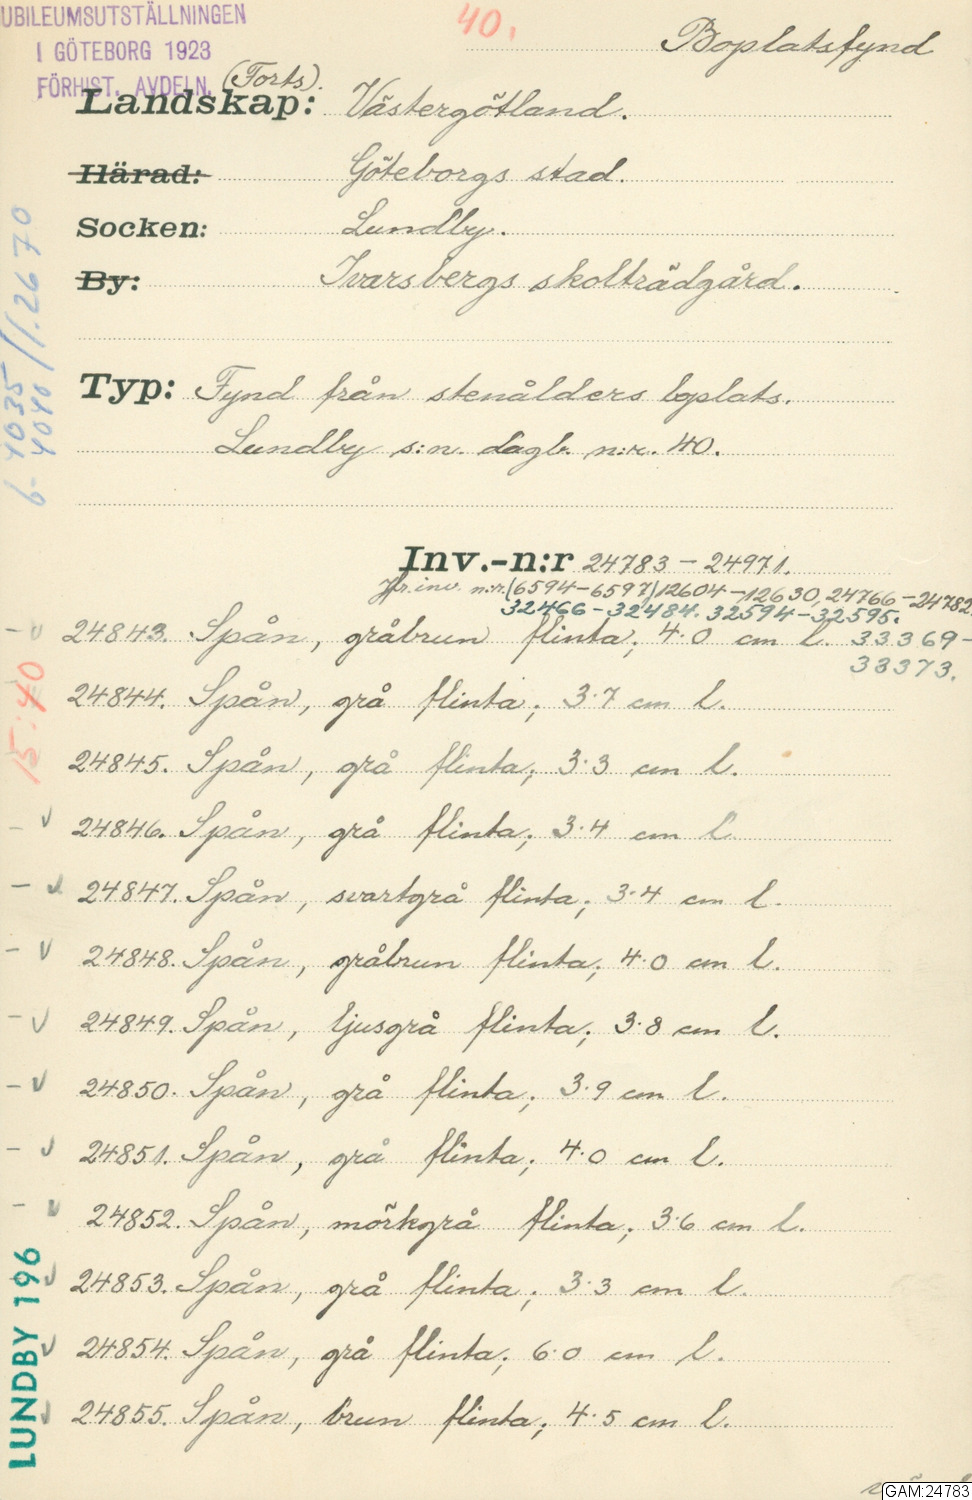 JUBILEUMSUTSTÄLLNINGEN
I GÖTEBORG 1923
FÖRHIST. AVDELN.
40.
Boplatsfynd
(Forts).
Landskap: Västergötland.
Härad: Göteborgs stad.
Socken: Lundby.
By: Ivarsbergs skolträdgård.
Typ: Fynd från stenålders boplats.
Lundby s:n. dagb. n:r. 40.
Inv.-n:r 24783-24971.
Jfr. inv. n:r. (6594-6597) 12604-12630, 24766-24782
32466-32484. 32594-32595.
33369-
33373.
24843. Spån, gråbrun flinta; 4.0 cm l.
24844. Spån, grå flinta; 3.7 cm l.
24845. Spån, grå flinta; 3.3 cm l.
24846. Spån, grå flinta; 3.4 cm l
24847. Spån, svartgrå flinta; 3.4 cm l.
24848. Spån, gråbrun flinta; 4.0 cm l.
24849. Spån, ljusgrå flinta; 3.8 cm l.
24850. Spån, grå flinta; 3.9 cm l.
24851. Spån, grå flinta; 4.0 cm l.
24852. Spån, mörkgrå flinta; 3.6 cm l.
24853. Spån, grå flinta; 3.3 cm l.
24854. Spån, grå flinta; 6.0 cm l.
24855. Spån, brun flinta; 4.5 cm l.
15:40
LUNDBY 196
GAM:24783